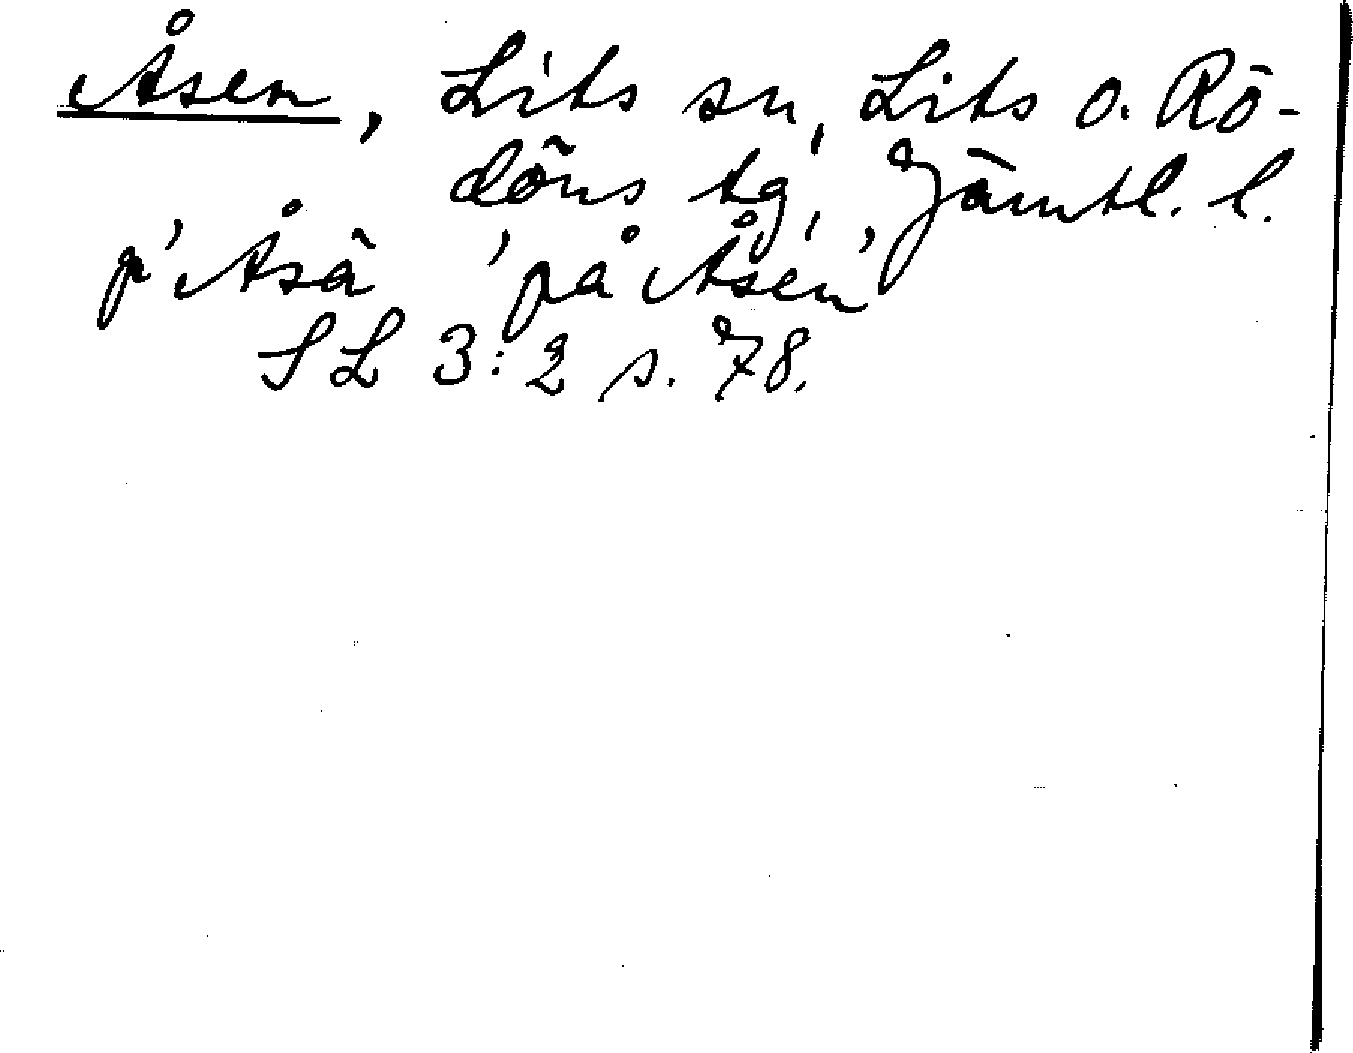 Åsen, Lits sn, Lits o. Rö-
döns tg, Jämtl. l.
p' Åsä 'på Åsen'
SL 3:2 s. 78.